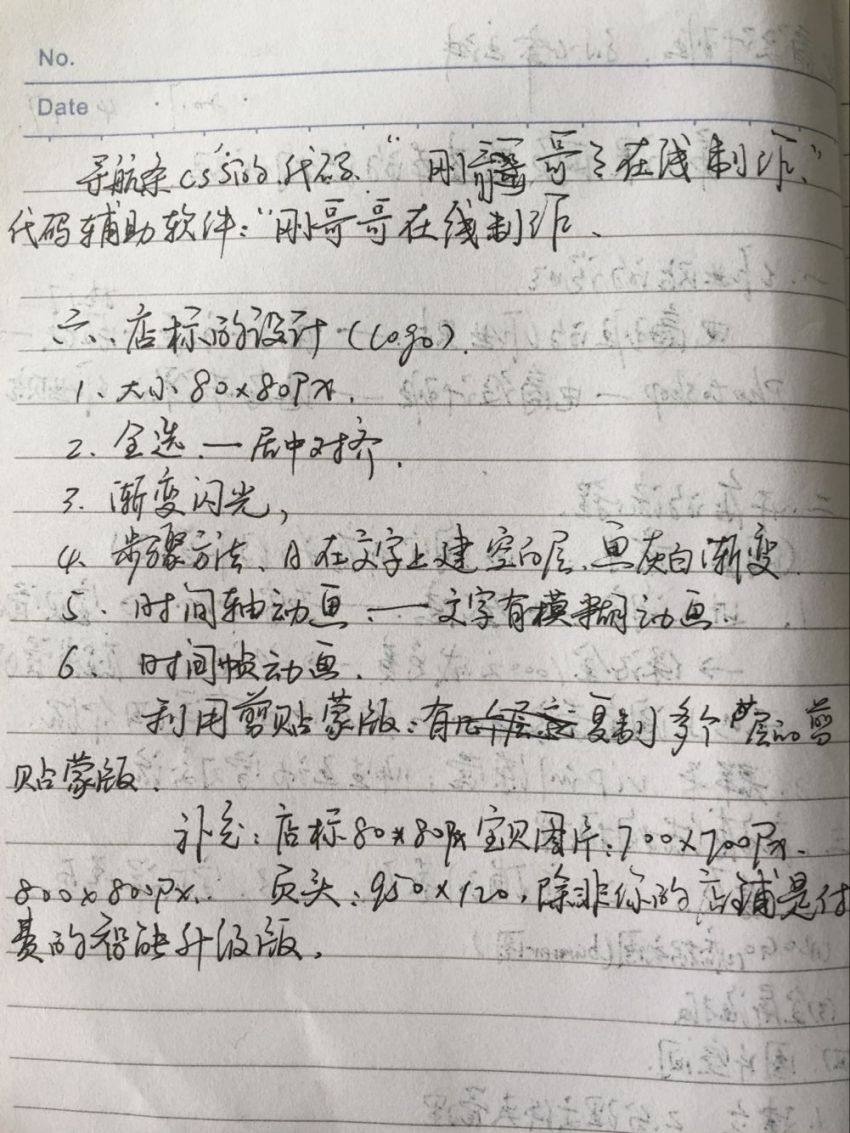 No.
Date
导航条css的代码.“刚哥哥在线制作”
代码辅助软件:“刚哥哥在线制作、
六、店标的设计(logo).
1、大小80×80px.
2、全选.一居中对齐.
3.渐变闪光,
4、步骤方法、A在文字上建空白层、画灰白渐变.
5、时间轴动画:一文字有模糊动画.
6、时间帧动画.
利用剪贴蒙版:复制多个层的剪
贴蒙版.
补充:店标80×80px宝贝图片:700×700px.
800×800px.页头:950×120,除非你的店铺是付
费的智能升级版.